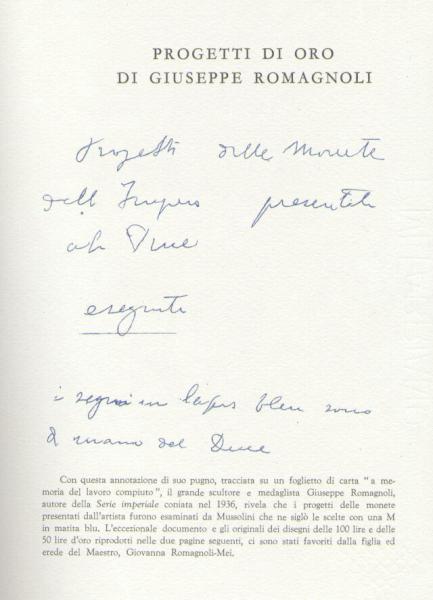 PROGETTI DI ORO
DI GIUSEPPE ROMAGNOLI
Progetti delle Monete
dell Impero presentate
al Duce
eseguite
i segni in lapis bleu sono
di mano del Duce
Con questa annotazione di suo pugno, tracciata su un foglietto di carta “ a me-
moria del lavoro compiuto ”, il grande scultore e medaglista Giuseppe Romagnoli,
autore della Serie imperiale coniata nel 1936, rivela che i progetti delle monete
presentati dall'artista furono esaminati da Mussolini che ne siglò le scelte con una M
in matita blu. L'eccezionale documento e gli originali dei disegni delle 100 lire e delle
50 lire d'oro riprodotti nelle due pagine seguenti, ci sono stati favoriti dalla figlia ed
erede del Maestro, Giovanna Romagnoli-Mei.